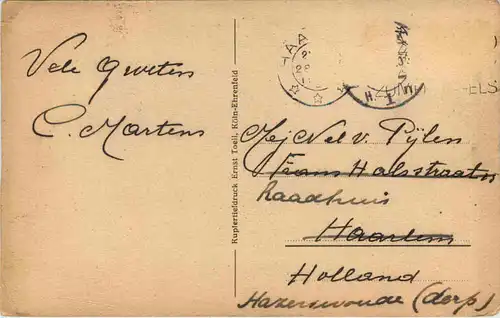 Vele groeten
C. Martens
Kupfertiefdruck Ernst Toell, Köln-Ehrenfeld
HAA
Mej Nel v. Pijlen
Frans Halsstraat
Raadhuis
Haarlem
Holland
Hazerswoude (dorp)